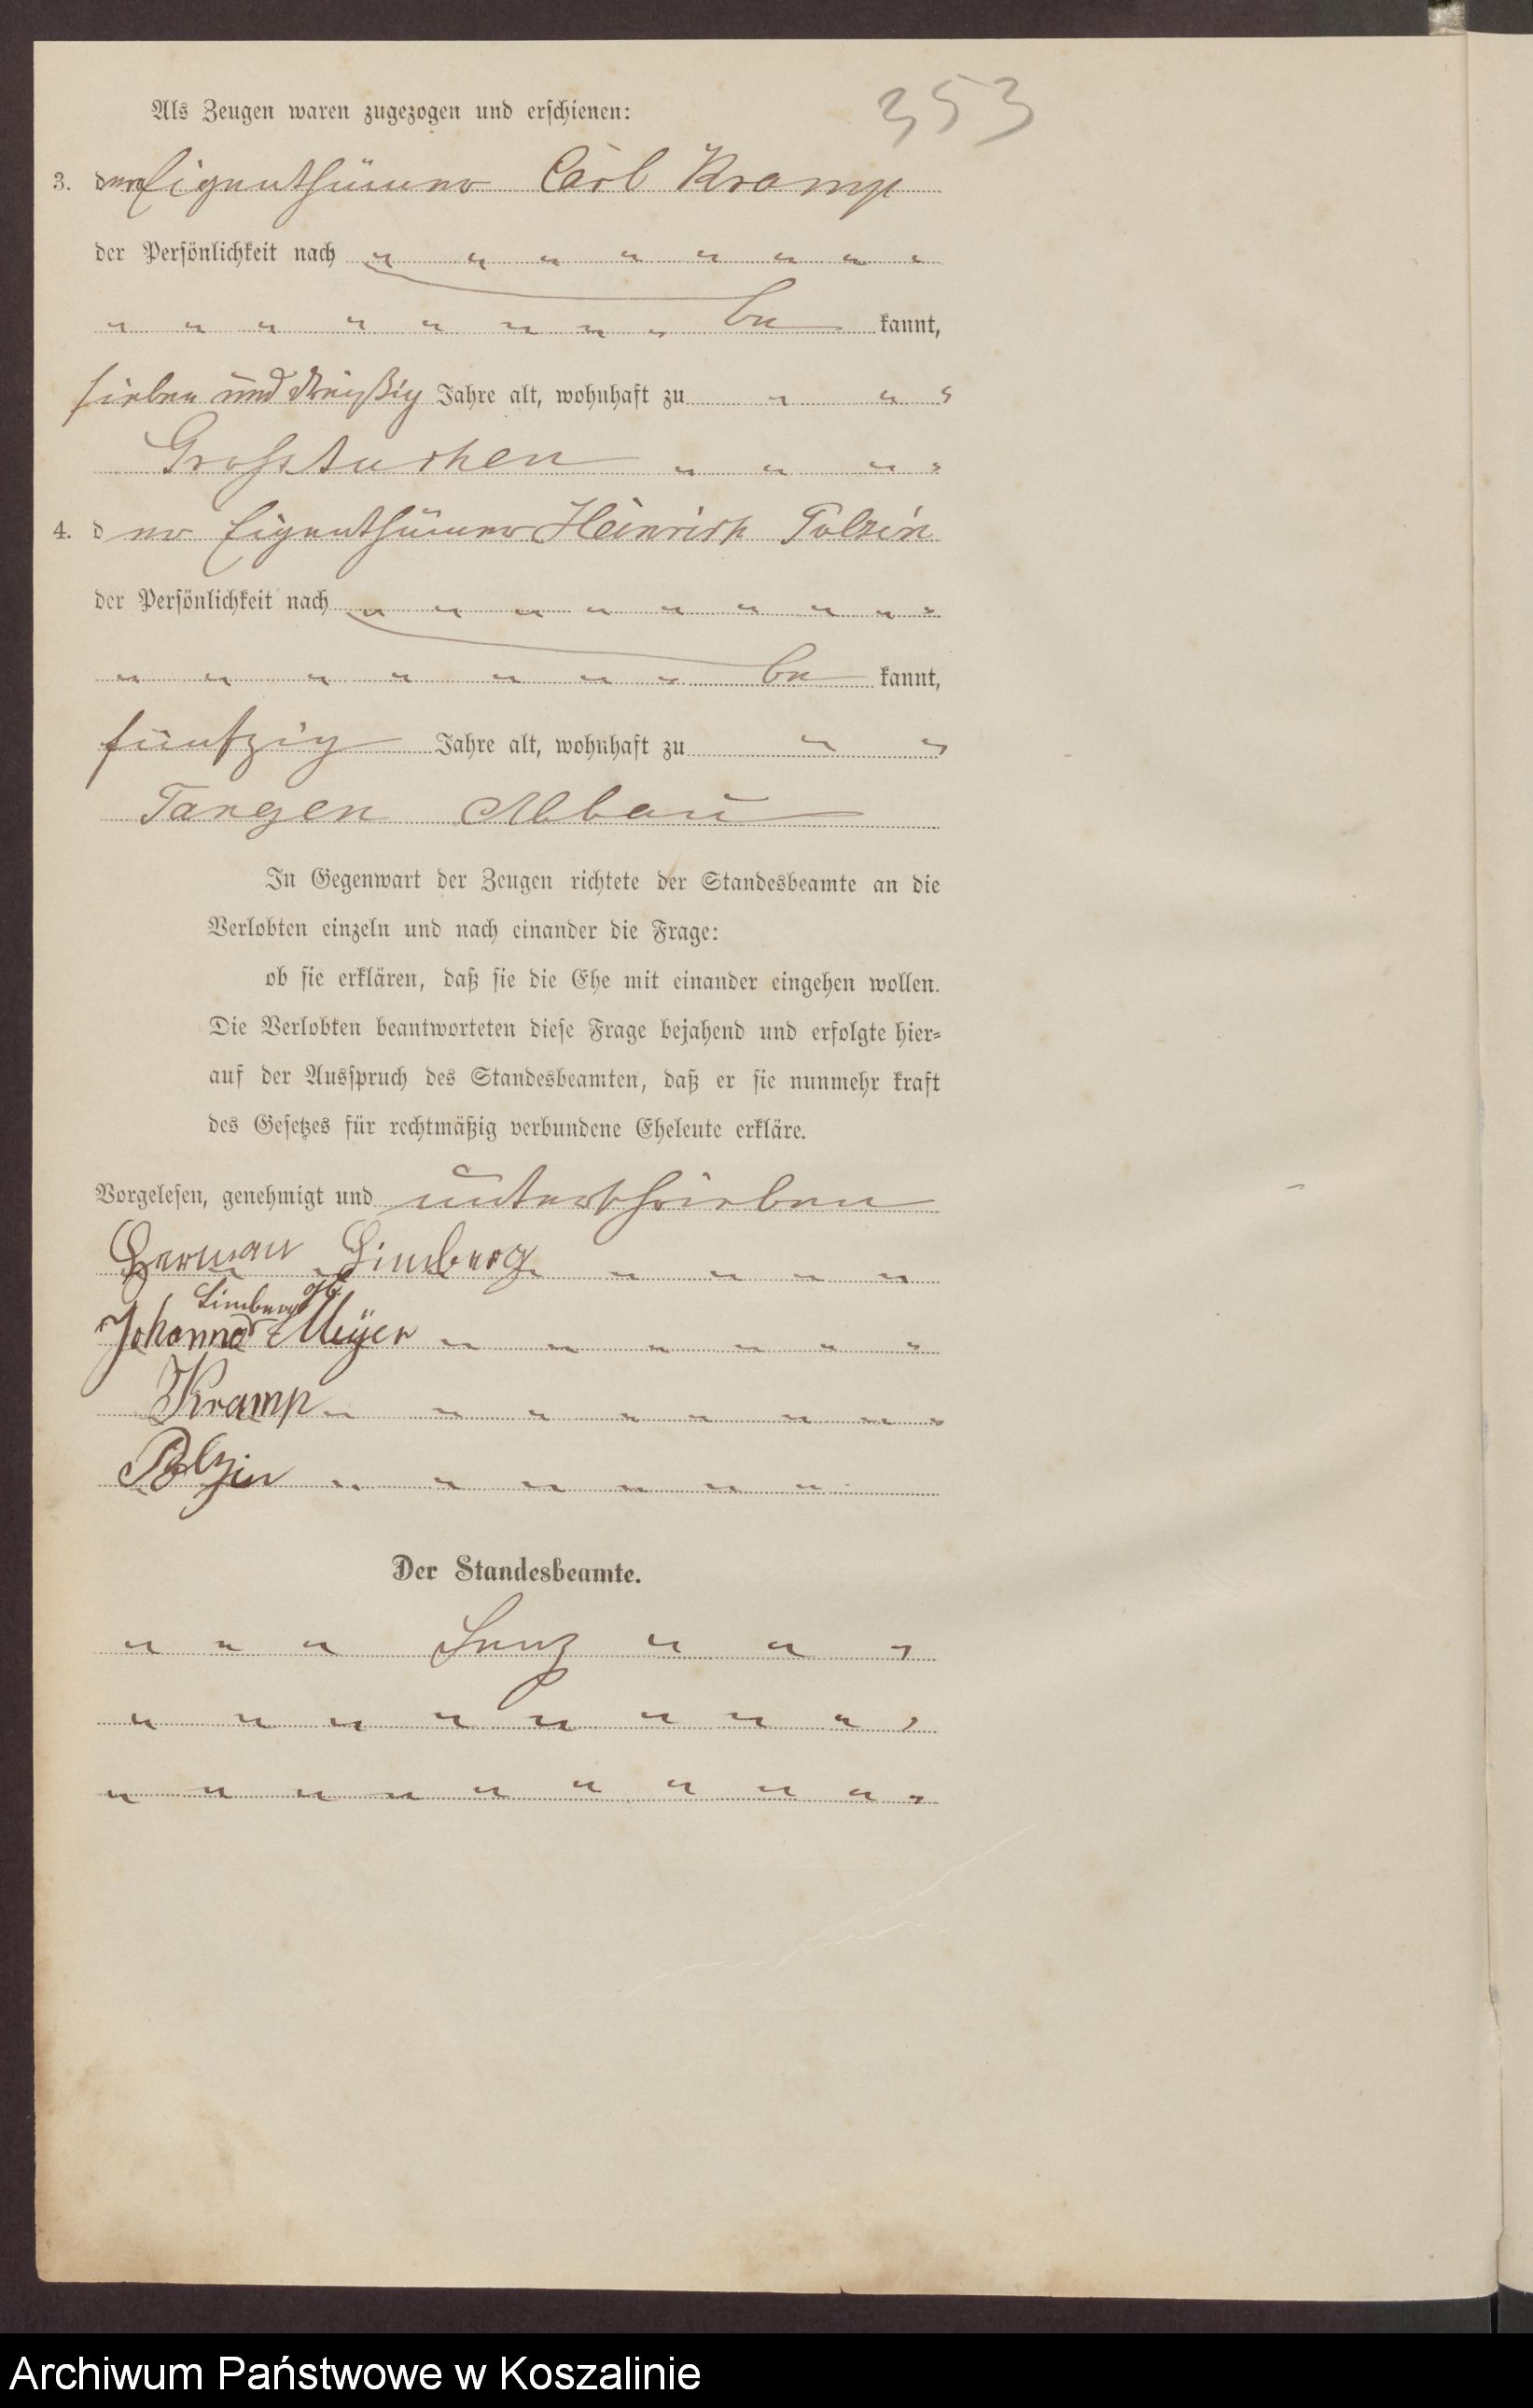 353
Als Zeugen waren zugezogen und erschienen:
3. der Eigenthümer Carl Kramp
der Persönlichkeit nach " " " " " " " "
" " " " " " " " be kannt,
sieben und dreißig Jahre alt, wohnhaft zu " " "
Großtuchen " " " "
4. der Eigenthümer Heinrich Polzin
der Persönlichkeit nach " " " " " " " " "
" " " " " " " be kannt,
fünfzig Jahre alt, wohnhaft zu " "
Tangen Abbau
In Gegenwart der Zeugen richtete der Standesbeamte an die
Verlobten einzeln und nach einander die Frage:
ob sie erklären, daß sie die Ehe mit einander eingehen wollen.
Die Verlobten beantworteten diese Frage bejahend und erfolgte hier=
auf der Ausspruch des Standesbeamten, daß er sie nunmehr kraft
des Gesetzes für rechtmäßig verbundene Eheleute erkläre.
Vorgelesen, genehmigt und unterschrieben
Herman Limberg " " " "
Limberg gb
Johanna Meÿer " " " " " "
Kramp " " " " " " " "
Polzin " " " " " "
Der Standesbeamte.
" " " Lenz " " "
" " " " " " " " "
" " " " " " " " " "
Archiwum Państwowe w Koszalinie